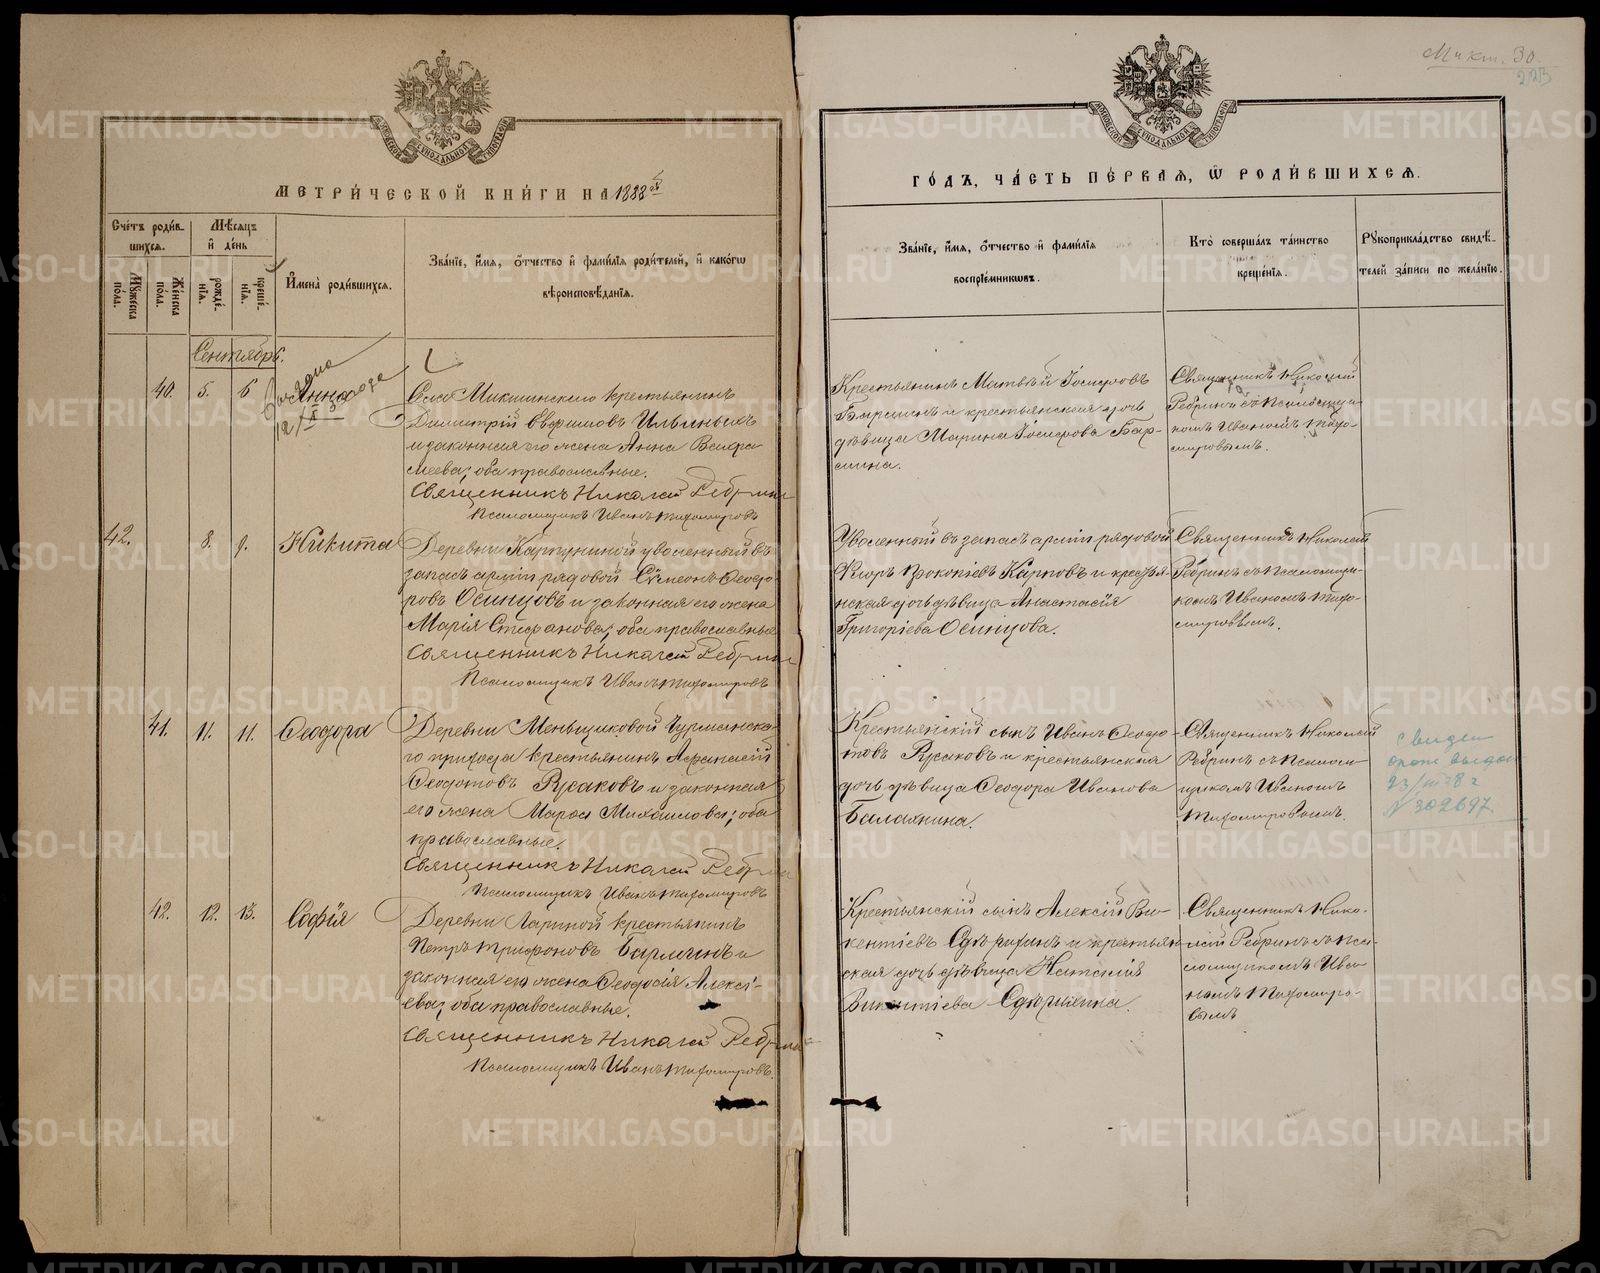 МЕТРИ́ЧЕСКОЙ КНИ́ГИ НА 1888 ой
Сче́тъ роди́в-
шихся.
Мѣ́сяцъ
и҆ де́нь
Му́жеска по́ла.
Же́нска по́ла.
рожде́-
нїѧ.
креще́-
нїѧ.
И҆мена̀ роди́вшихся.
Зва́нїе, и҆́мя, ѻ҆́тчество и҆ фами́лїя роди́телей, и҆ како́гѡ
вѣроисповѣ́данїя.
Сентябрь.
40.
5.
6
Анна
Села Микшинскаго крестьянинъ
Димитрій Ильиныхъ
и законная его жена Анна
оба православные.
Священникъ Николай Ребринъ
Псаломщикъ Иванъ Тихомировъ
42.
8.
9.
Никита
Деревни Карпуниной уволенный въ
запасъ арміи рядовой Сѵмеонъ Ѳеодо-
ровъ Осинцовъ и законная его жена
Марія Стефанова; оба православные
Священникъ Николай Ребринъ
Псаломщикъ Иванъ Тихомировъ
41.
11.
11.
Ѳеодора
Деревни Меньщиковой
го прихода крестьянинъ Аѳанасій
Ѳеодотовъ Русаковъ и законная
его жена Марѳа Михаилова; оба
православные.
Священникъ Николай Ребринъ
Псаломщикъ Иванъ Тихомировъ
42.
12.
13.
Софія
Деревни Лариной крестьянинъ
Петръ Трифоновъ и
законная его жена Ѳеодосія Алексі-
ева; оба православные.
Священникъ Николай Ребринъ
Псаломщикъ Иванъ Тихомировъ.
30.
223
ГО́ДЪ, ЧА́СТЬ ПЕ́РВАЯ, Ѡ҆ РОДИ́ВШИХСЯ.
Зва́нїе, и҆́мя, ѻ҆́тчество и҆ фами́лїя
воспрїе́мникѡвъ.
Кто̀ соверша́лъ та́инство
креще́нїя.
Рукоприкла́дство свидѣ́-
телей за́писи по жела́нїю.
Крестьянинъ Матвѣй Іосифовъ
и крестьянская дочь
дѣвица Марина Іосифова Бар-
мина.
Священникъ Николай
Ребринъ съ Псаломщи-
комъ Иваномъ Тихо-
мировымъ.
Уволенный въ запасъ арміи рядовой
Прокопіевъ Карповъ и крестья-
нская дочь дѣвица Анастасія
Григоріева Осинцова.
Священникъ Николай
Ребринъ съ Псаломщи-
комъ Иваномъ Тихо-
мировымъ.
Крестьянскій сынъ Иванъ Ѳеодо-
товъ Русаковъ и крестьянская
дочь дѣвица Ѳеодора Иванова
Балакина.
Священникъ Николай
Ребринъ съ Псалом-
щикомъ Иваномъ
Тихомировымъ.
23/III 28 г
№ 302697.
Крестьянскій сынъ Алексій Ви-
кентіевъ и крестьян-
ская дочь дѣвица Наталія
Викентіева
Священникъ Нико-
лай Ребринъ съ Пса-
ломщикомъ Ива-
номъ Тихомиро-
вымъ
METRIKI.GASO-URAL.RU